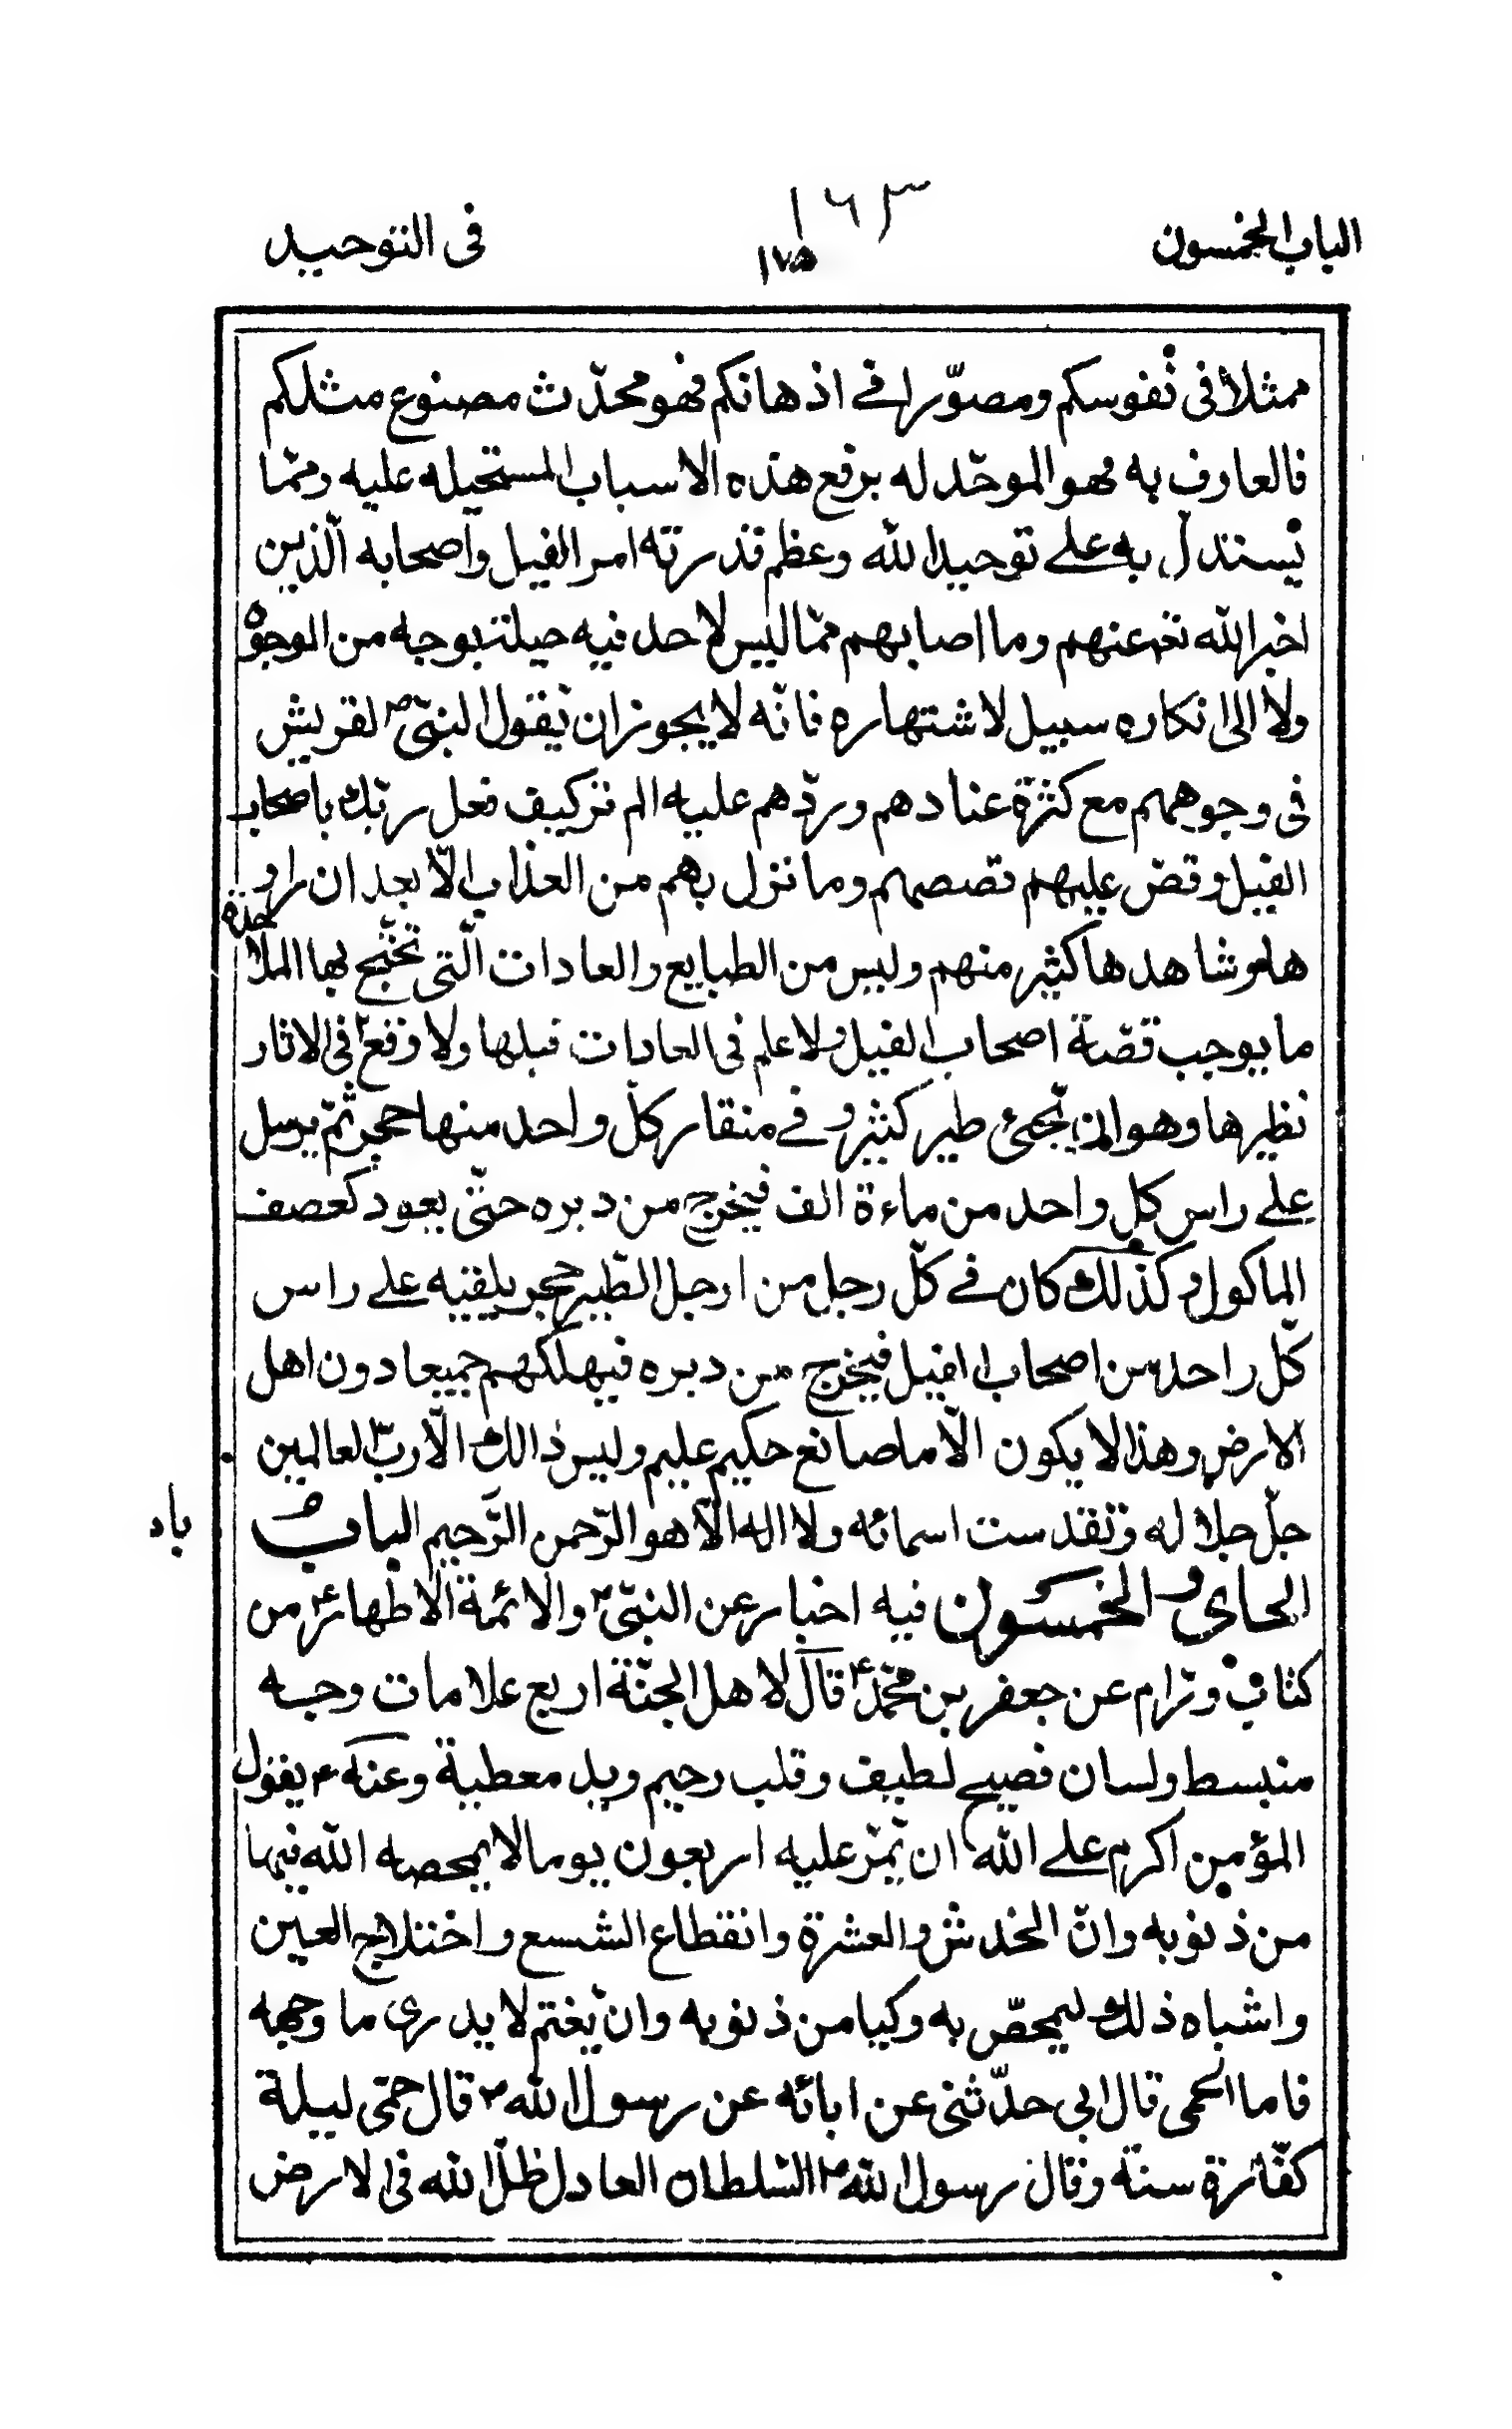 الباب الخمسون
١٦٣
١٧٥
فی التوحید
ممثلا فی نفوسکم ومصوّرا فے اذهانکم فهو محدّث مصنوع مثلکم
فالعارف به فهو الموحّد له برفع هذه الاسباب المستحیله علیه وممّا
یستدل به علے توحید الله وعظم قدرته امر الفیل واصحابه الّذین
اخبر الله تعه عنهم وما اصابهم ممّا لیس لاحد فیه حیلة بوجه من الوجوه
ولا الی انکاره سبیل لاشتهاره فانّه لا یجوز ان یقول النبیّ ص لقریش
فی وجوههم مع کثرة عنادهم وردّهم علیه الم تر کیف فعل ربّک باصحاب
الفیل وقصّ علیهم قصصهم وما نزل بهم من العذاب الّا بعد ان راو
ها وشاهدها کثیر منهم ولیس من الطبایع والعادات الّتی تحتّج بها الملا
حدة
ما یوجب قصّة اصحاب الفیل ولا علم فی العادات قبلها ولا وقع فی الاثار
نظیرها وهو ان یّجیئ طیر کثیر و فے منقار کلّ واحد منها حجر ثمّ یرسل
علے راس کل واحد من ماءة الف فیخرج من دبره حتّی یعود کعصف
الماکول وکذلک کان فے کلّ رجل من ارجل الطّیر حجر یلقیه علے راس
کلّ واحد من اصحاب الفیل فیخرج من دبره فیهلکهم جمیعا دون اهل
الارض وهذا لا یکون الّا ما صانع حکیم علیم ولیس ذالک الّا ربّ العالمین
جلّ جلاله وتقدست اسمائه ولا اله الّا هو الرّحمن الرّحیم الباب
باد
الحادی و الخمسون فیه اخبار عن النبیّ ص والائمة الاطهار ع من
کتاب ورّام عن جعفر بن محمّد ع قال لاهل الجنّة اربع علامات وجه
منبسط ولسان فصیح لطیف وقلب رحیم وید معطیة وعنه ع یقول
المؤمن اکرم علے الله ان یّمرّ علیه اربعون یوما لا یمحصه الله فیها
من ذنوبه وانّ الخدش والعشرة وانقطاع الشسع واختلاج العین
واشباه ذلک لیمحّص به وکیا من ذنوبه وان یّغتم لا یدری ما وجهه
فاما الحمی قال ابی حدّثنی عن ابائه عن رسول الله ص قال حمّی لیلة
کفّارة سنة وقال رسول الله ص السّلطان العادل ظلّ الله فی الارض